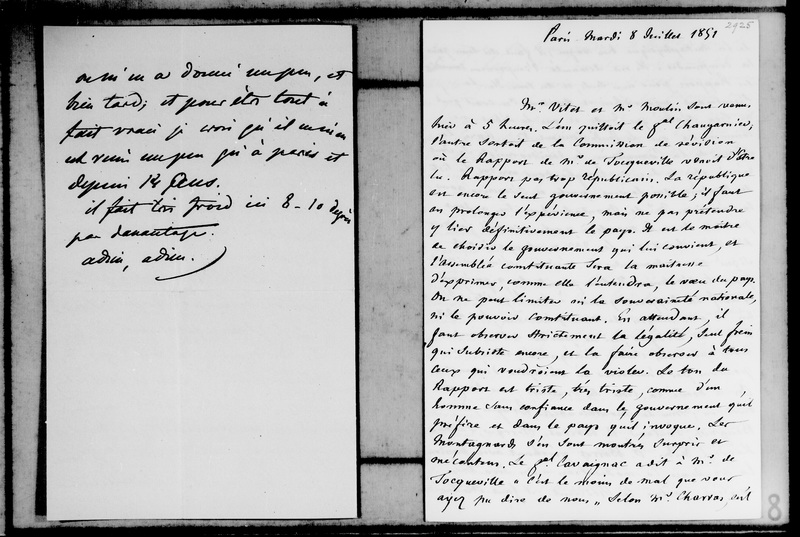 m'en a donné un peu, et
bien tard; et pour être tout à
fait vrai je crois qu'il
est venu un peu qu'à paris et
depuis
il fait très froid ici 8-10 degrés
pas davantage.
adieu, adieu.
2925
Paris Mardi 8 Juillet 1851
Mr. Vitet et Mr. Moulin sont venus
hier à 5 heures. L'un quittoit le gal Changarnier,
l'autre sortoit de la Commission de révision
où le Rapport de Mr. de Tocqueville venoit d'être
lu. Rapport pas trop républicain. La république
est encore le seul gouvernement possible; il faut
en prolonger l'expérience, mais ne pas prétendre
y lier définitivement le pays. Il est le maître
de choisir le gouvernement qui lui convient, et
l'Assemblée constituante sera la maitresse
d'exprimer, comme elle l'entendra, le vœu du pays.
On ne peut limiter ni la souveraineté nationale,
ni le pouvoir constituant. En attendant, il
faut observer strictement la légalité, seul frein
qui subsiste encore, et la faire observer à tous
ceux qui voudroient la violer. Le ton du
Rapport est triste, très triste, comme d'un
homme sans confiance dans le gouvernement qu'il
préfère et dans le pays qu'il invoque. Les
Montagnards s'en sont montrés surpris et
mécontens. Le gal Cavaignac a dit à Mr. de
Tocqueville "c'est le moins de mal que vous
ayez pu dire de nous." Selon Mr. Charras, s'il
8